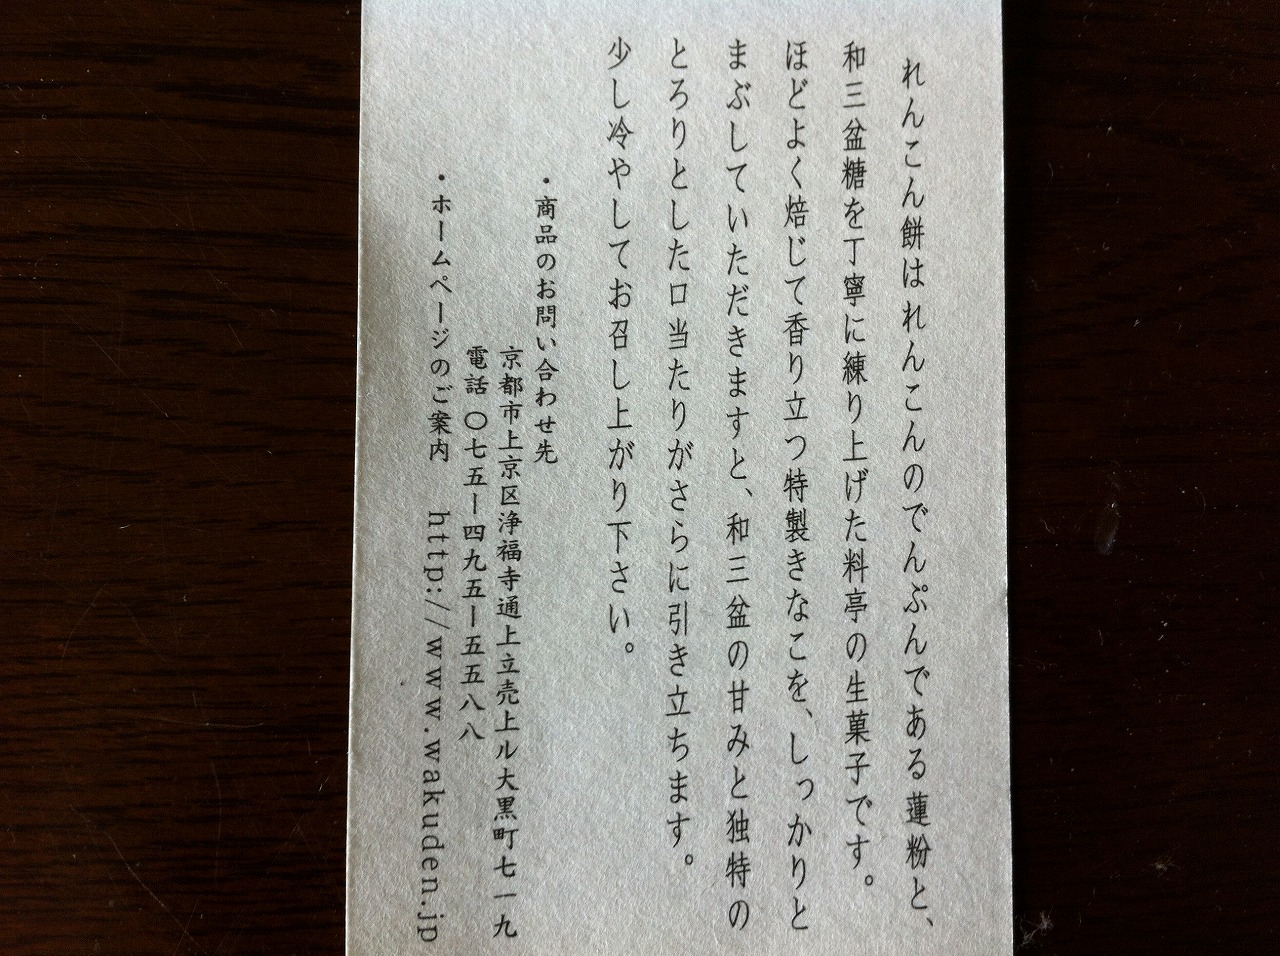 れんこん餅はれんこんのでんぷんである蓮粉と、
和三盆糖を丁寧に練り上げた料亭の生菓子です。
ほどよく焙じて香り立つ特製きなこを、しっかりと
まぶしていただきますと、和三盆の甘みと独特の
とろりとした口当たりがさらに引き立ちます。
少し冷やしてお召し上がり下さい。
・商品のお問い合わせ先
京都市上京区浄福寺通上立売上ル大黒町七一九
電話〇七五ー四九五ー五五八八
・ホームページのご案内 http://www.wakuden.jp